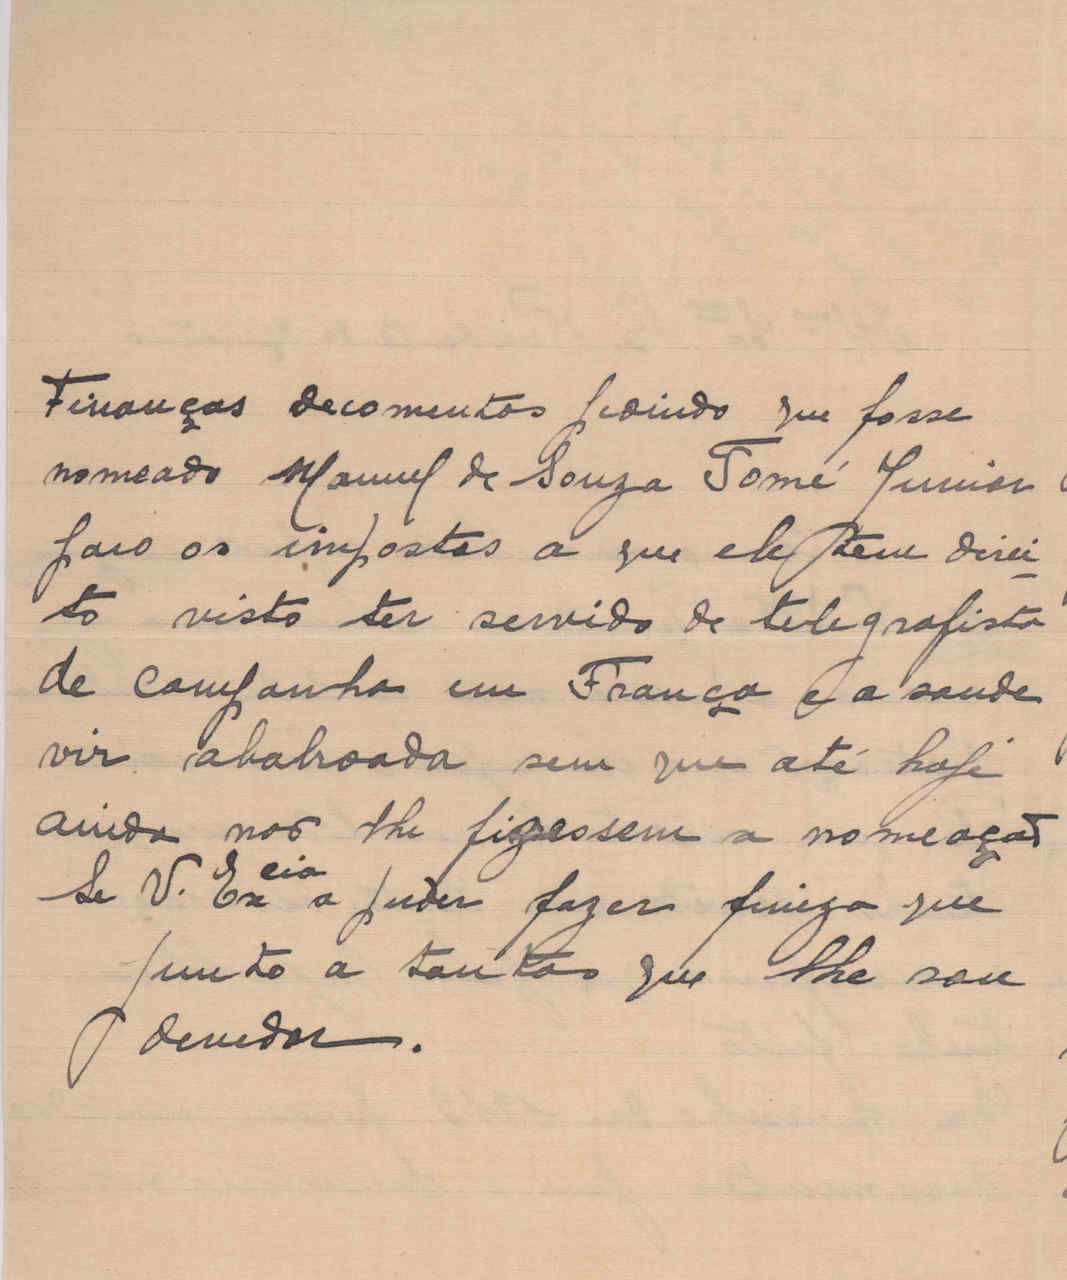 Finanças decomentos pedindo que fosse
nomeado Manuel de Souza Tomé Junior
para os impostos a que ele tem direi-
to visto ter servido de telegrafista
de campanha em França e a saude
vir abalroada sem que até hoje
ainda não lhe fizessem a nomeação
Se V. Excia a puder fazer fineza que
junto a tantas que lhe sou
devedor.